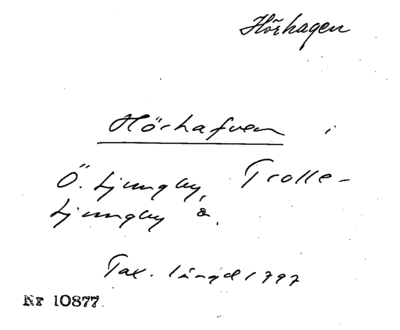 Hörhagen
Hörhafven i
Ö. Ljungby, Trolle-
Ljungby &.
Tax. längd 1797
Nr 10877